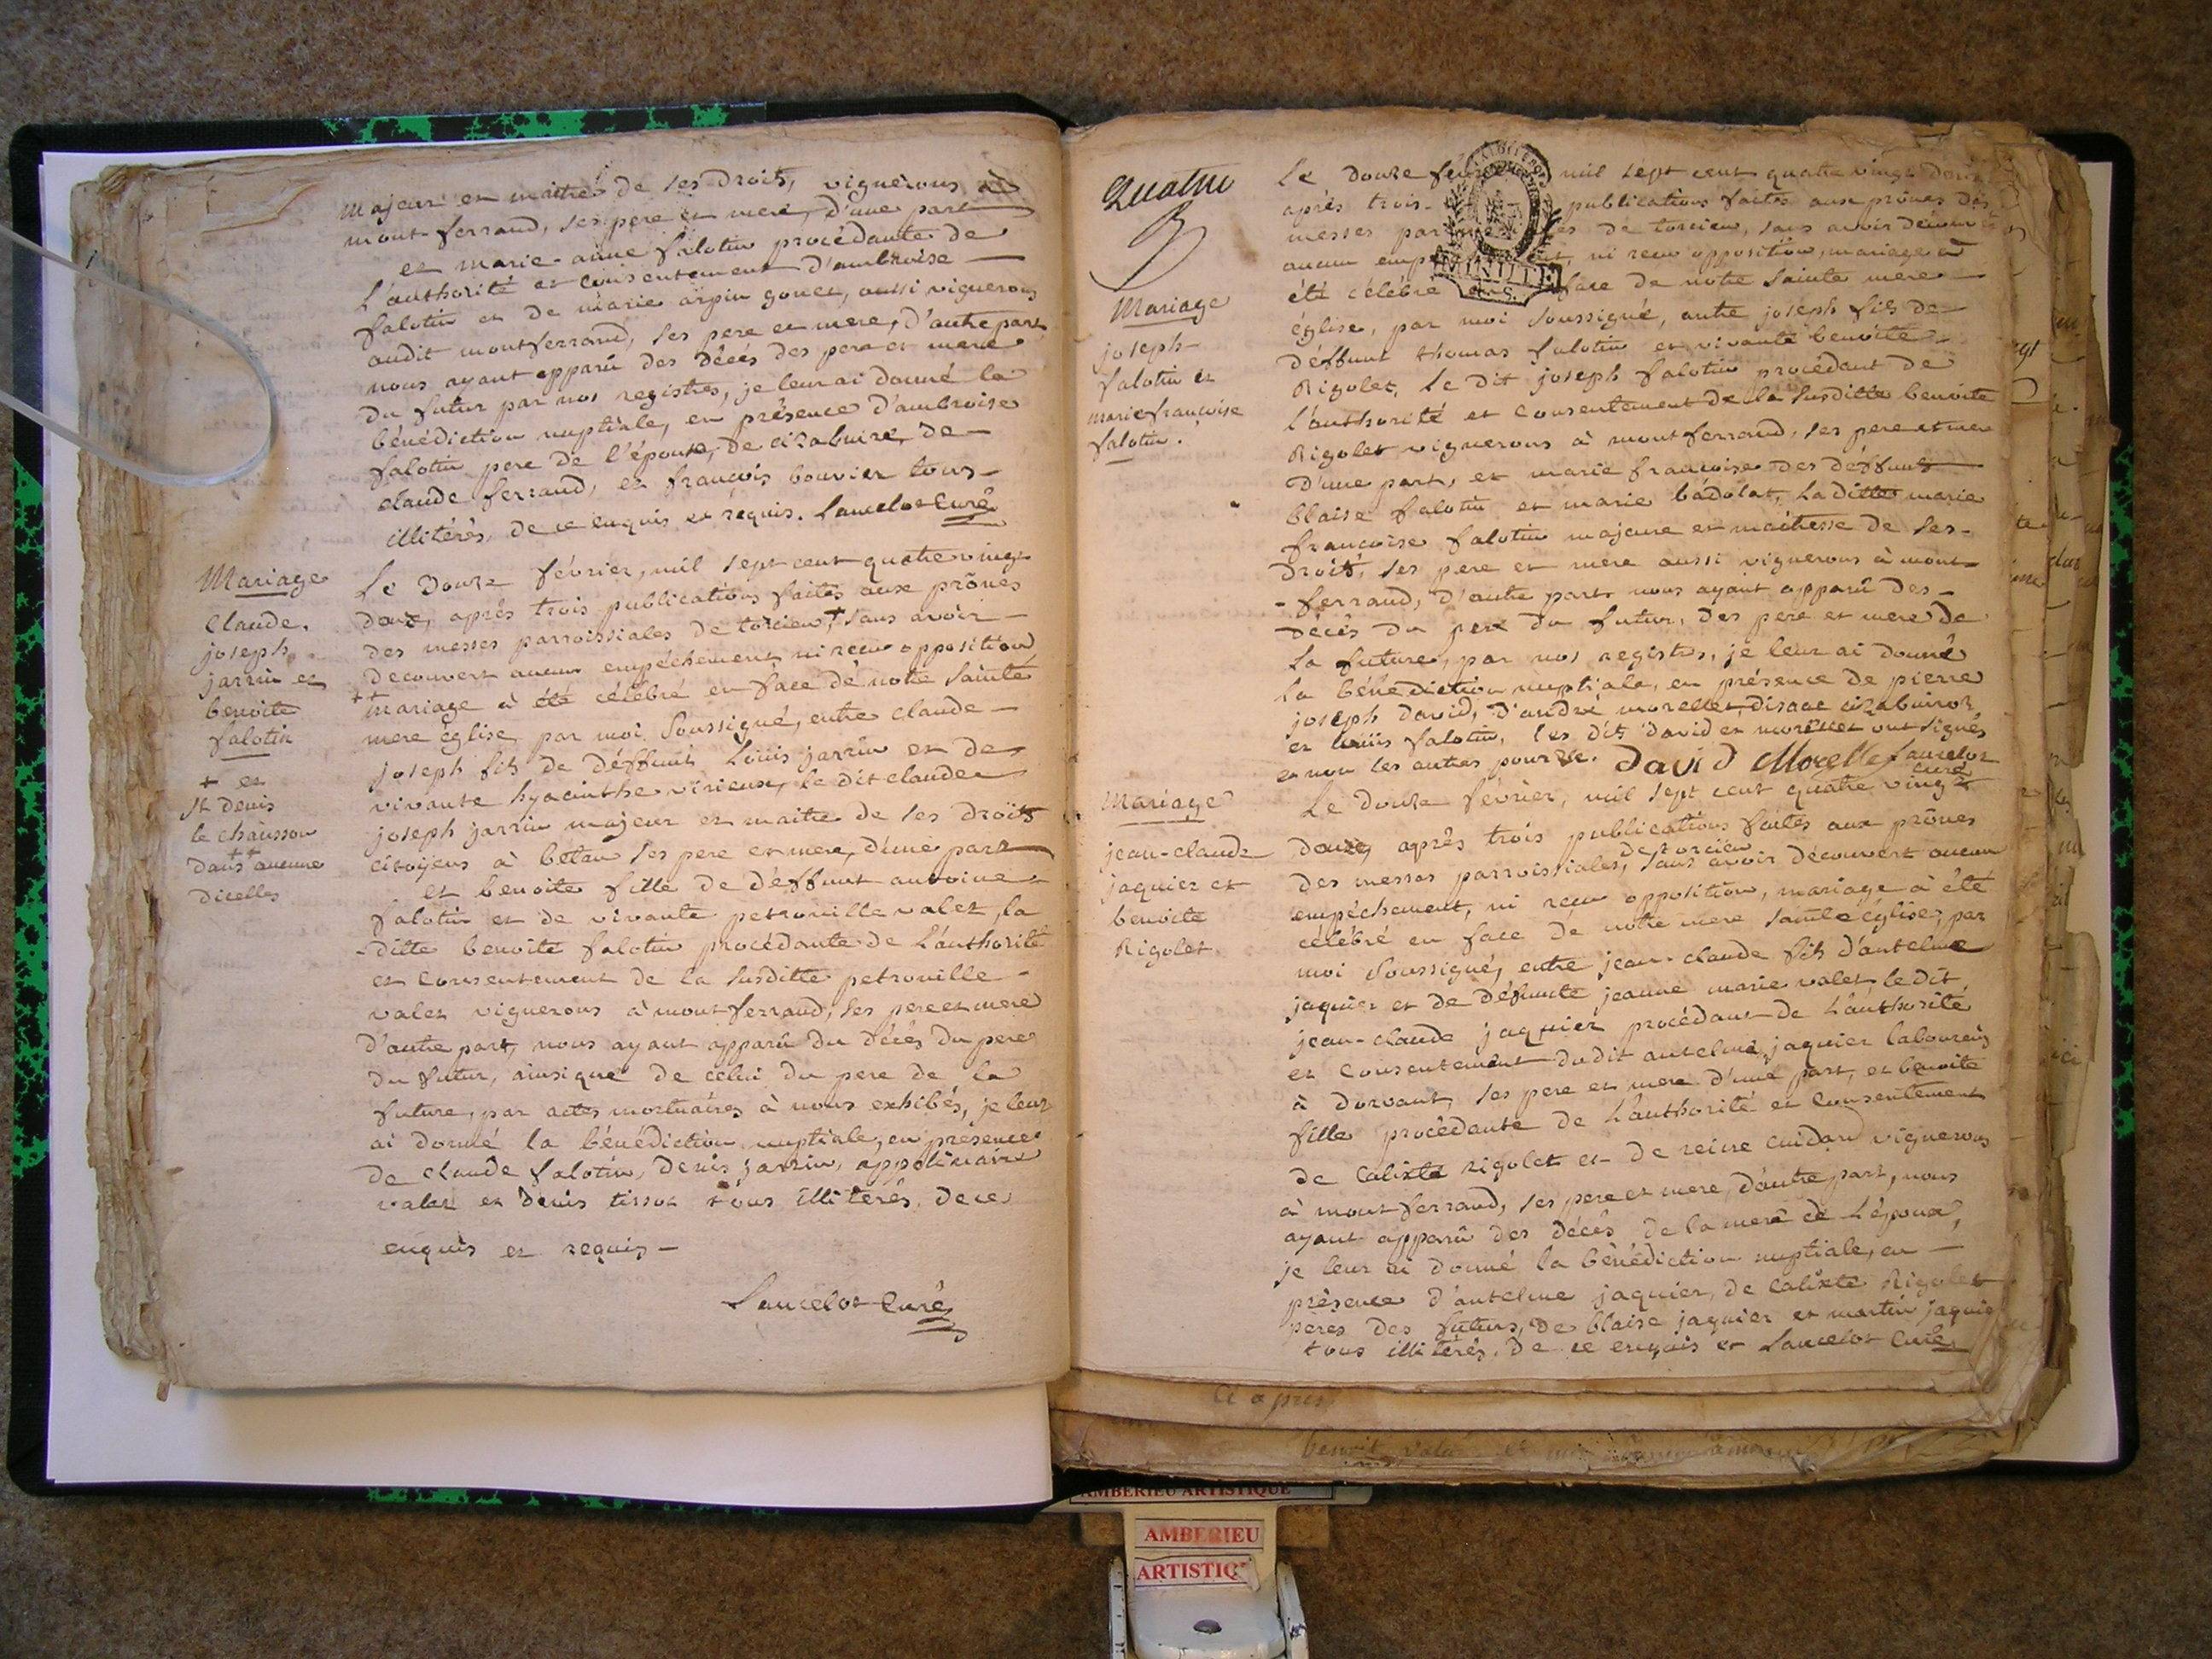 majeur et maitre de ses droits, vignerons à
mont ferrand, ses pere et mere, d'une part
et marie-anne falotin procédante de
L'authorité et consentement d'ambroise
falotin et de marie arpin gonet, aussi vignerons
audit montferrand, ses pere et mere, d'autre part
nous ayant apparû des décés des pere et mere
du futur par nos registres, je leur ai donné la
bénédiction nuptiale, en présence d'ambroise
falotin pere de l'épouse, de de
claude ferrand, et françois bouvier tous
illitérés, de ce enquis et requis. Lancelot Curé
Mariage
Claude.
joseph
jarrin et
benoite
falotin
+ et
St denis
le chausson
++
dans aucune
dicelles
Le Douze février, mil sept cent quatre vingt
douze, après trois publications faites aux prônes
des messes parroissiales de torcieu,+ sans avoir
decouvert aucun empéchement, ni reçu opposition
++ mariage à été célébré en face de notre Sainte
mere église, par moi Soussigné, entre claude
joseph fils de déffunt Loüis jarrin et de
vivante hyacinthe virieux, le dit claude
joseph jarrin majeur et maitre de ses droits
citoyens à bétan ses pere et mere, d'une part
et benoite fille de déffunt antoine
falotin et de vivante petronille valet, la
ditte benoite falotin procédante de L'authorité
et Consentement de la susditte petronille
valet vignerons à mont ferrand, ses pere et mere
d'autre part, nous ayant apparû du décés du pere
du futur, ainsi que de celui du pere de la
future, par actes mortuaires à nous exhibés, je leur
ai donné la bénédiction nuptiale, en présence
de claude falotin, denis jarrin, appolinaire
valet et denis tissot tous illitérés, de ce
enquis et requis
Lancelot Curé
Quatre
Mariage
joseph
falotin et
marie françoise
falotin.
Le Douze mil sept cent quatre vingt douze
après trois publications faites aux prônes des
messes de torcieu, sans avoir découvert
aucun ni reçu opposition, mariage à
été célébré face de notre Sainte mere
église, par moi Soussigné, entre joseph fils de
déffunt thomas falotin et vivante benoite
Rigolet, Le dit joseph falotin procédant de
L'authorité et Consentement de la susditte benoite
Rigolet vignerons à mont ferrand, ses pere et mere
d'une part, et marie françoise des déffunts
blaise falotin et marie bádolat, La ditte marie
françoise falotin majeure et maitresse de ses
droits, ses pere et mere aussi vignerons à mont
-ferrand, d'autre part nous ayant apparû des
décés du pere du futur, des pere et mere de
La future, par nos registres, je leur ai donné
La bénédiction nuptiale, en présence de pierre
joseph david, d'andré morellet, disaac
et loüis falotin, les dits david et morellet ont signés
et non les autres pour ce. David Morellet Lancelot
curé
Mariage
jean-claude
jaquier et
benoite
Rigolet
Le Douze février, mil sept cent quatre vingt
douze, après trois publications faites aux prônes
de torcieu
des messes parroissiales, sans avoir découvert aucun
empéchement, ni reçu opposition, mariage à été
célébré en face de notre mere sainte église, par
moi Soussigné, entre jean-claude fils d'antelme
jaquier et de défunte jeanne marie valet, le dit
jean-claude jaquier procédant de L'authorité
et Consentement dudit antelme jaquier laboureurs
à dorvant, ses pere et mere d'une part, et benoite
fille procédante de L'authorité et Consentement
de Calixte rigolet et de reine cuidard vignerons
à mont ferrand, ses pere et mere, d'autre part, nous
ayant apparû des décés de la mere de L'époux,
je leur ai donné la bénédiction nuptiale, en
présence d'antelme jaquier, de Calixte Rigolet
peres des futurs, de blaise jaquier et martin jaquier
tous illitérés, de ce enquis et Lancelot Curé
Ci apres
benoit valet
AMBERIEU ARTISTIQUE
AMBERIEU
ARTISTIQ